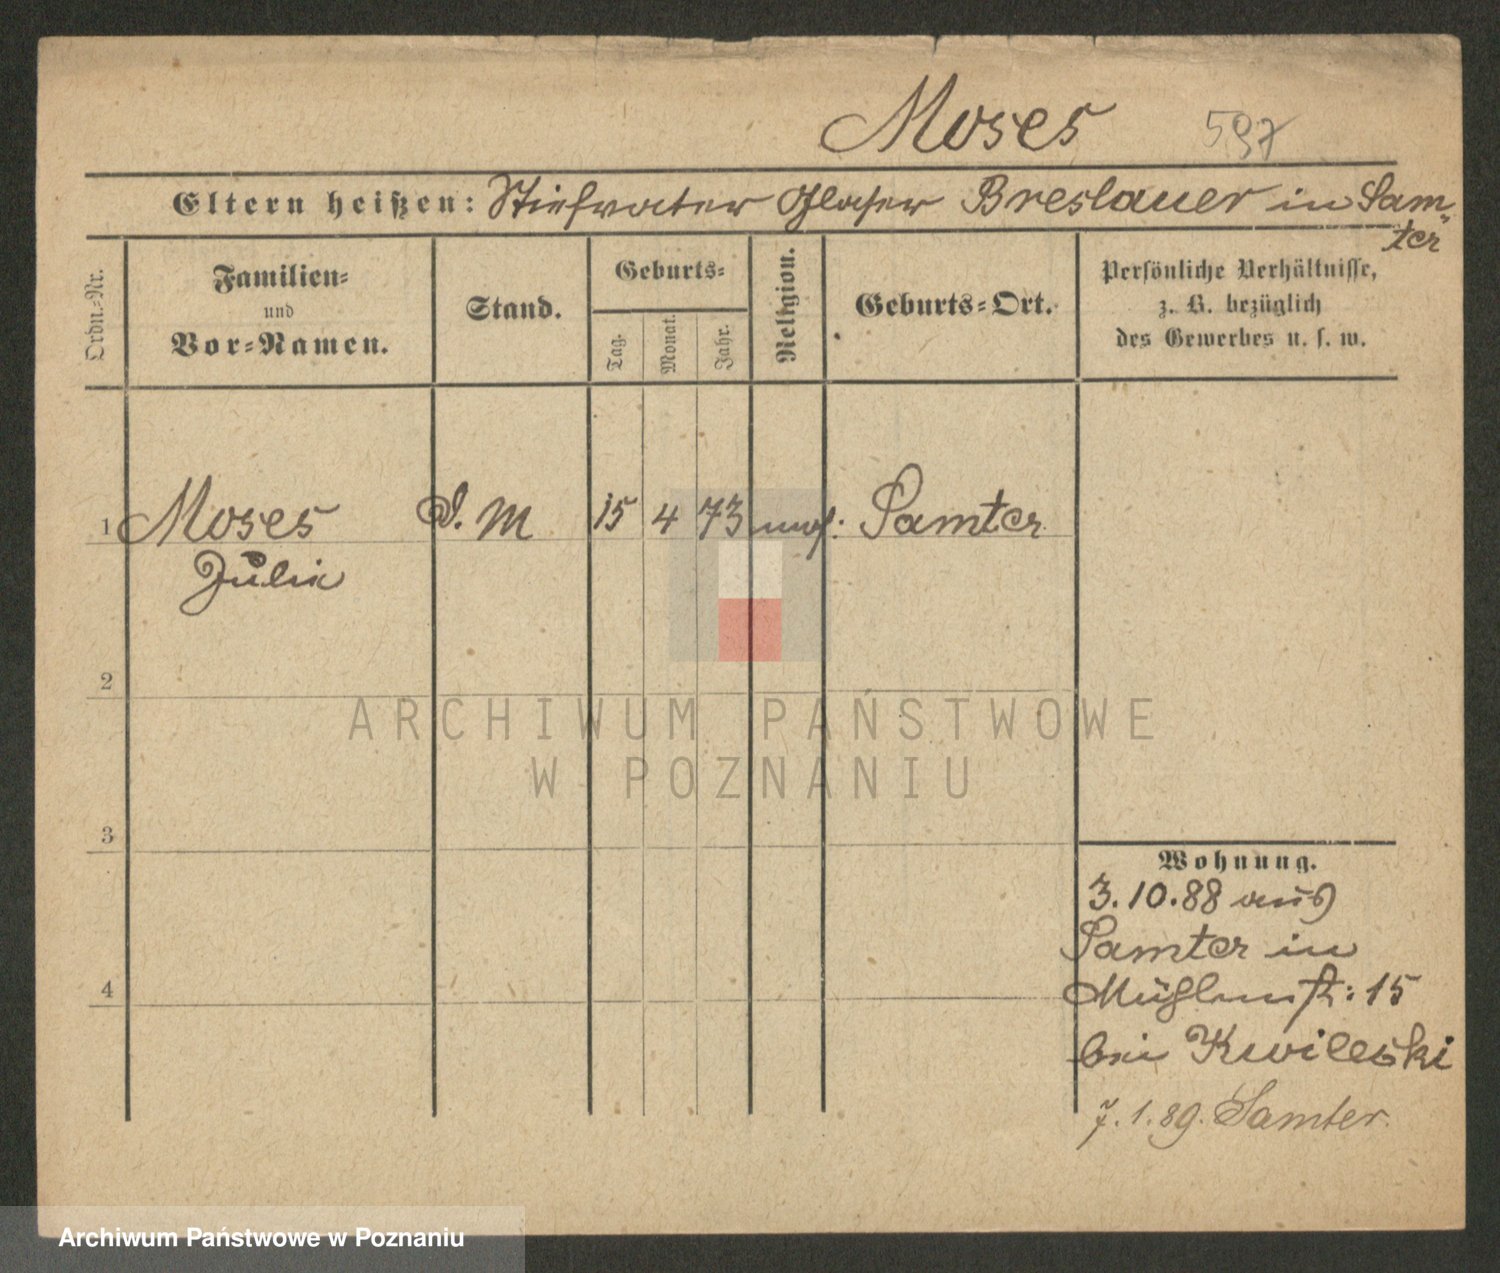 Moses 597
Eltern heißen: Stiefvater Glaser Breslauer in Sam-
ter
Ordn.-Nr.
Familien-
und
Vor-Namen.
Stand.
Geburts-
Tag.
Monat.
Jahr.
Religion.
Geburts-Ort.
Persönliche Verhältnisse,
z. B. bezüglich
des Gewerbes u. s. w.
1 Moses D. M 15 4 73 mos: Samter
Julie
2
ARCHIWUM PAŃSTWOWE
W POZNANIU
3
Wohnung.
3.10.88 aus
Samter in
4
Mühlenstr: 15
bei Kwileski
7.1.89. Samter.
Archiwum Państwowe w Poznaniu